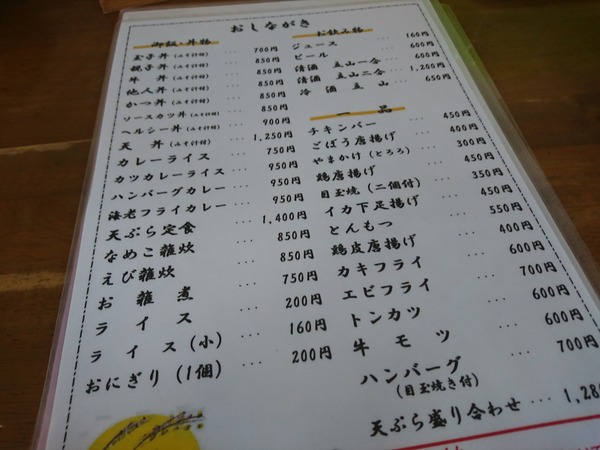 おしながき
御飯・丼物
玉子丼 (みそ汁付) ... 700円
親子丼 (みそ汁付) ... 850円
牛 丼 (みそ汁付) ... 850円
他人丼 (みそ汁付) ... 850円
かつ丼 (みそ汁付) ... 850円
ソースカツ丼 (みそ汁付) ... 850円
ヘルシー丼 (みそ汁付) ... 900円
天 丼 (みそ汁付) ... 1,250円
カレーライス ... 750円
カツカレーライス ... 950円
ハンバーグカレー ... 950円
海老フライカレー ... 950円
天ぷら定食 ... 1,400円
なめこ雑炊 ... 850円
えび雑炊 ... 850円
お 雑 煮 ... 750円
ラ イ ス ... 200円
ラ イ ス (小) ... 160円
おにぎり (1個) ... 200円
お飲み物
ジュース ... 160円
ビール ... 600円
清酒 立山一合 ... 600円
清酒 立山二合 ... 1,200円
冷 酒 立 山 ... 650円
一 品
チキンバー ... 450円
ごぼう唐揚げ ... 400円
やまかけ (とろろ) ... 300円
鶏唐揚げ ... 450円
目玉焼 (二個付) ... 350円
イカ下足揚げ ... 450円
とんもつ ... 550円
鶏皮唐揚げ ... 400円
カキフライ ... 600円
エビフライ ... 700円
トンカツ ... 600円
牛 モ ツ ... 600円
ハンバーグ ... 700円
(目玉焼き付)
天ぷら盛り合わせ ... 1,28